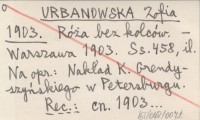 URBANOWSKA Zofia
1903. Róża bez kolców. –
Warszawa 1903. Ss. 458, il.
Na opr.: Nakład K. Grendy-
szyńskiego w Petersburgu.
Rec.: cn. 1903...